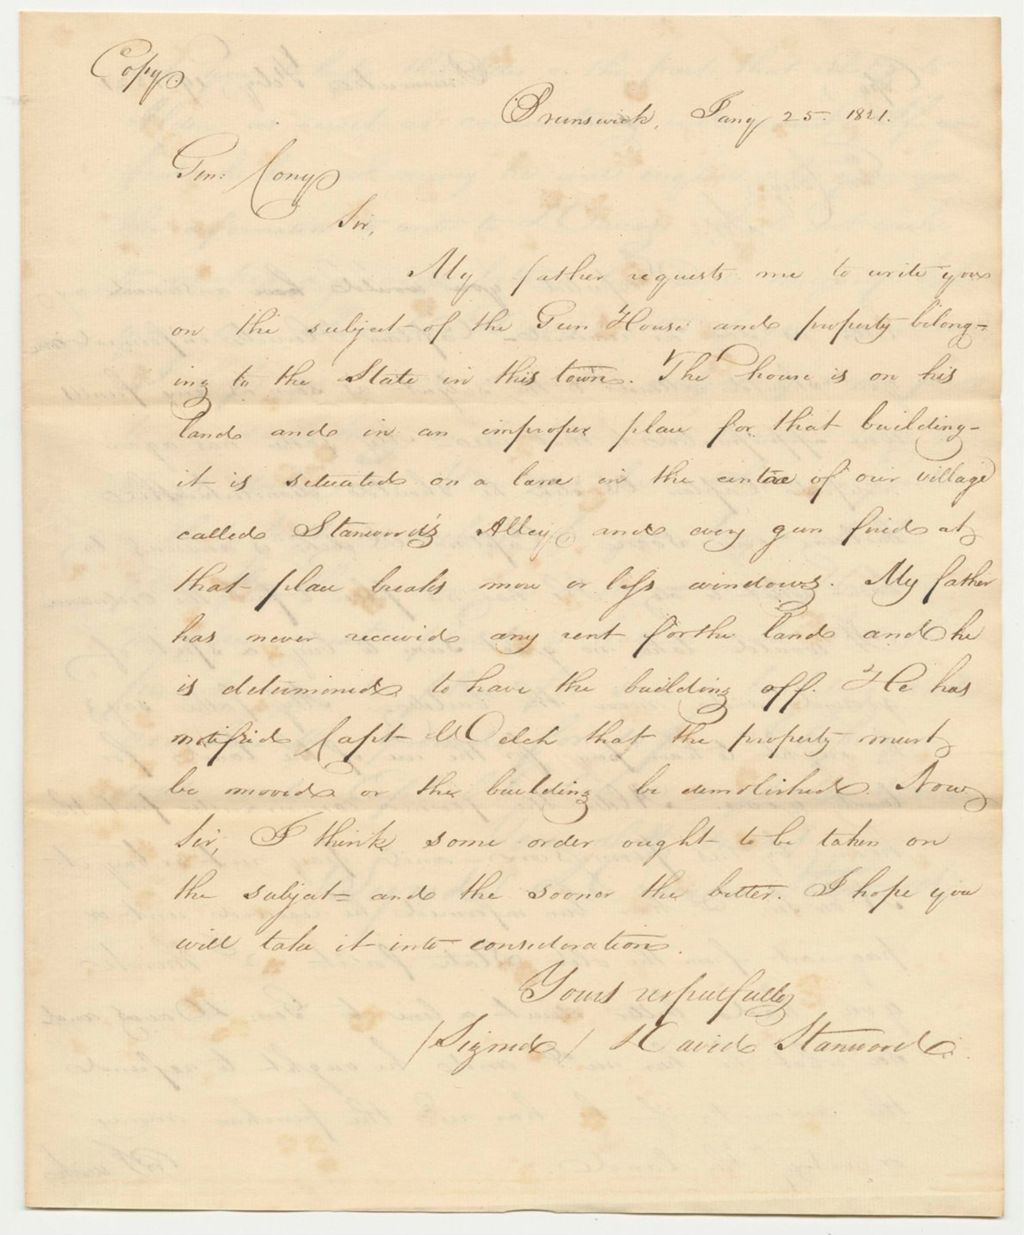 Copy
Brunswick, Jany 25. 1821.
Gen: Cony
Sir,
My father requests me to write you
on the subject of the Gun House and property belong=
ing to the State in this town. The house is on his
land and in an improper place for that building-
it is situated on a lane in the centre of our village
called Stanwood's Alley, and every gun fired at
that place breaks more or less windows. My father
has never received any rent for the land and he
is determined to have the building off. He has
notified Capt Welch that the property must
be moved or the building be demolished. Now
Sir, I think some order ought to be taken on
the subject- and the sooner the better. I hope you
will take it into consideration.
Yours respectfully
/Signed/ David Stanwood.